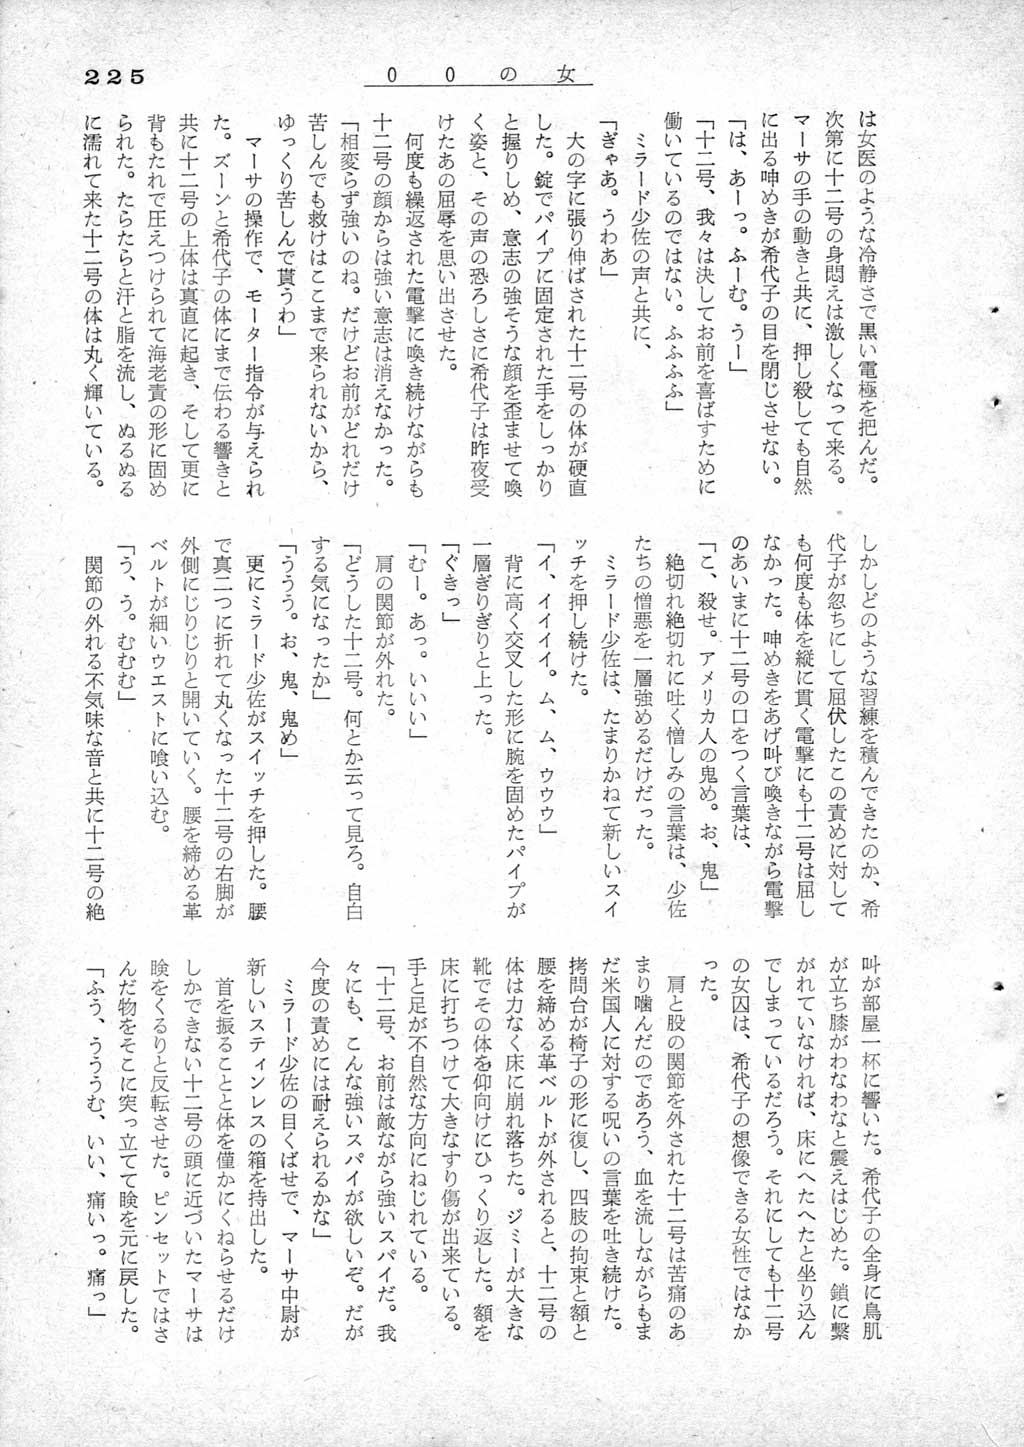 225
00の女
は女医のような冷静さで黒い電極を把んだ。
次第に十二号の身悶えは激しくなって来る。
マーサの手の動きと共に、押し殺しても自然
に出る呻めきが希代子の目を閉じさせない。
「は、あーっ。ふーむ。うー」
「十二号、我々は決してお前を喜ばすために
働いているのではない。ふふふふ」
ミラード少佐の声と共に、
「ぎゃあ。うわあ」
大の字に張り伸ばされた十二号の体が硬直
した。錠でパイプに固定された手をしっかり
と握りしめ、意志の強そうな顔を歪ませて喚
く姿と、その声の恐ろしさに希代子は昨夜受
けたあの屈辱を思い出させた。
何度も繰返された電撃に喚き続けながらも
十二号の顔からは強い意志は消えなかった。
「相変らず強いのね。だけどお前がどれだけ
苦しんでも救けはここまで来られないから、
ゆっくり苦しんで貰うわ」
マーサの操作で、モーター指令が与えられ
た。ズーンと希代子の体にまで伝わる響きと
共に十二号の上体は真直に起き、そして更に
背もたれで圧えつけられて海老責の形に固め
られた。たらたらと汗と脂を流し、ぬるぬる
に濡れて来た十二号の体は丸く輝いている。
しかしどのような習練を積んできたのか、希
代子が忽ちにして屈伏したこの責めに対して
も何度も体を縦に貫く電撃にも十二号は屈し
なかった。呻めきをあげ叫び喚きながら電撃
のあいまに十二号の口をつく言葉は、
「こ、殺せ。アメリカ人の鬼め。お、鬼」
絶切れ絶切れに吐く憎しみの言葉は、少佐
たちの憎悪を一層強めるだけだった。
ミラード少佐は、たまりかねて新しいスイ
ッチを押し続けた。
「イ、イイイイ。ム、ム、ウウウ」
背に高く交叉した形に腕を固めたパイプが
一層ぎりぎりと上った。
「ぐきっ」
「むー。あっ。いいい」
肩の関節が外れた。
「どうした十二号。何とか云って見ろ。自白
する気になったか」
「ううう。お、鬼、鬼め」
更にミラード少佐がスイッチを押した。腰
で真二つに折れて丸くなった十二号の右脚が
外側にじりじりと開いていく。腰を締める革
ベルトが細いウエストに喰い込む。
「う、う。むむむ」
関節の外れる不気味な音と共に十二号の絶
叫が部屋一杯に響いた。希代子の全身に鳥肌
が立ち膝がわなわなと震えはじめた。鎖に繋
がれていなければ、床にへたへたと坐り込ん
でしまっているだろう。それにしても十二号
の女囚は、希代子の想像できる女性ではなか
った。
肩と股の関節を外された十二号は苦痛のあ
まり噛んだのであろう、血を流しながらもま
だ米国人に対する呪いの言葉を吐き続けた。
拷問台が椅子の形に復し、四肢の拘束と額と
腰を締める革ベルトが外されると、十二号の
体は力なく床に崩れ落ちた。ジミーが大きな
靴でその体を仰向けにひっくり返した。額を
床に打ちつけて大きなすり傷が出来ている。
手と足が不自然な方向にねじれている。
「十二号、お前は敵ながら強いスパイだ。我
々にも、こんな強いスパイが欲しいぞ。だが
今度の責めには耐えられるかな」
ミラード少佐の目くばせで、マーサ中尉が
新しいスティンレスの箱を持出した。
首を振ることと体を僅かにくねらせるだけ
しかできない十二号の頭に近づいたマーサは
瞼をくるりと反転させた。ピンセットではさ
んだ物をそこに突っ立てて瞼を元に戻した。
「ふう、うううむ、いい、痛いっ。痛っ」